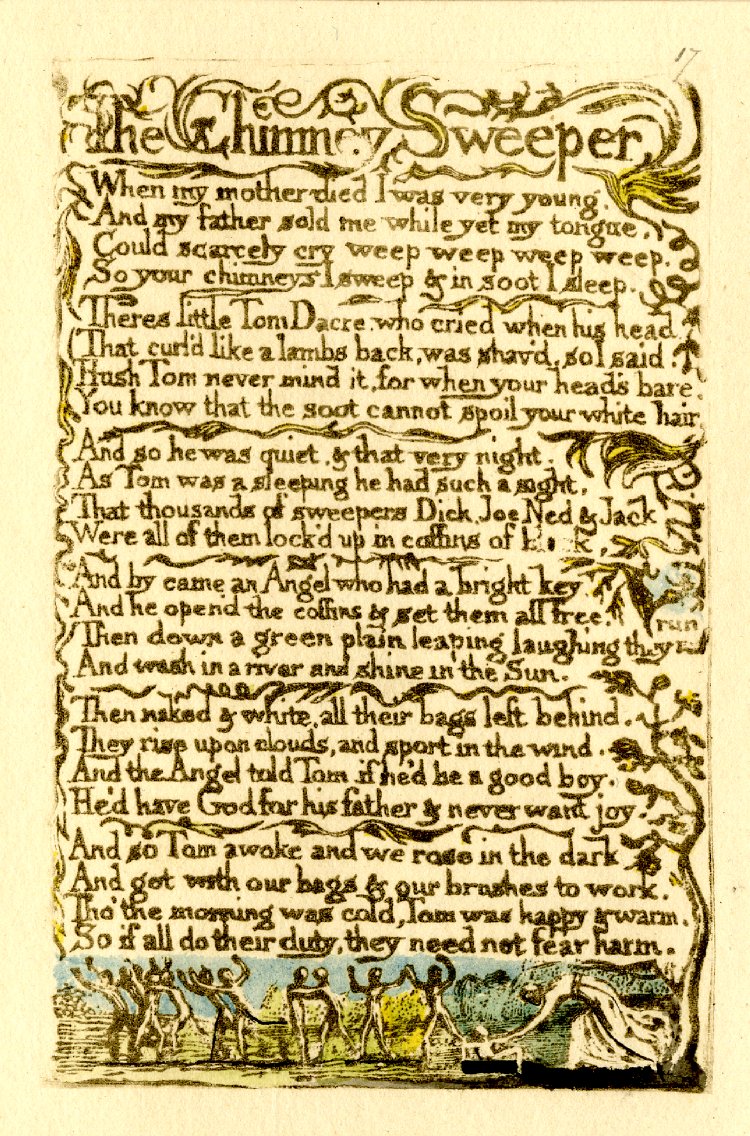 17
The Chimney Sweeper
When my mother died I was very young,
And my father sold me while yet my tongue,
Could scarcely cry weep weep weep weep.
So your chimneys I sweep & in soot I sleep.
Theres little Tom Dacre, who cried when his head
That curl'd like a lambs back, was shav'd, so I said.
Hush Tom never mind it, for when your head's bare,
You know that the soot cannot spoil your white hair
And so he was quiet, & that very night,
As Tom was a sleeping he had such a sight,
That thousands of sweepers Dick, Joe Ned & Jack
Were all of them lock'd up in coffins of
And by came an Angel who had a bright key
And he open'd the coffins & set them all free.
Then down a green plain leaping laughing they run
And wash in a river and shine in the Sun.
Then naked & white, all their bags left behind.
They rise upon clouds, and sport in the wind.
And the Angel told Tom if he'd be a good boy,
He'd have God for his father & never want joy.
And so Tom awoke and we rose in the dark
And got with our bags & our brushes to work.
Tho' the morning was cold, Tom was happy & warm.
So if all do their duty, they need not fear harm.